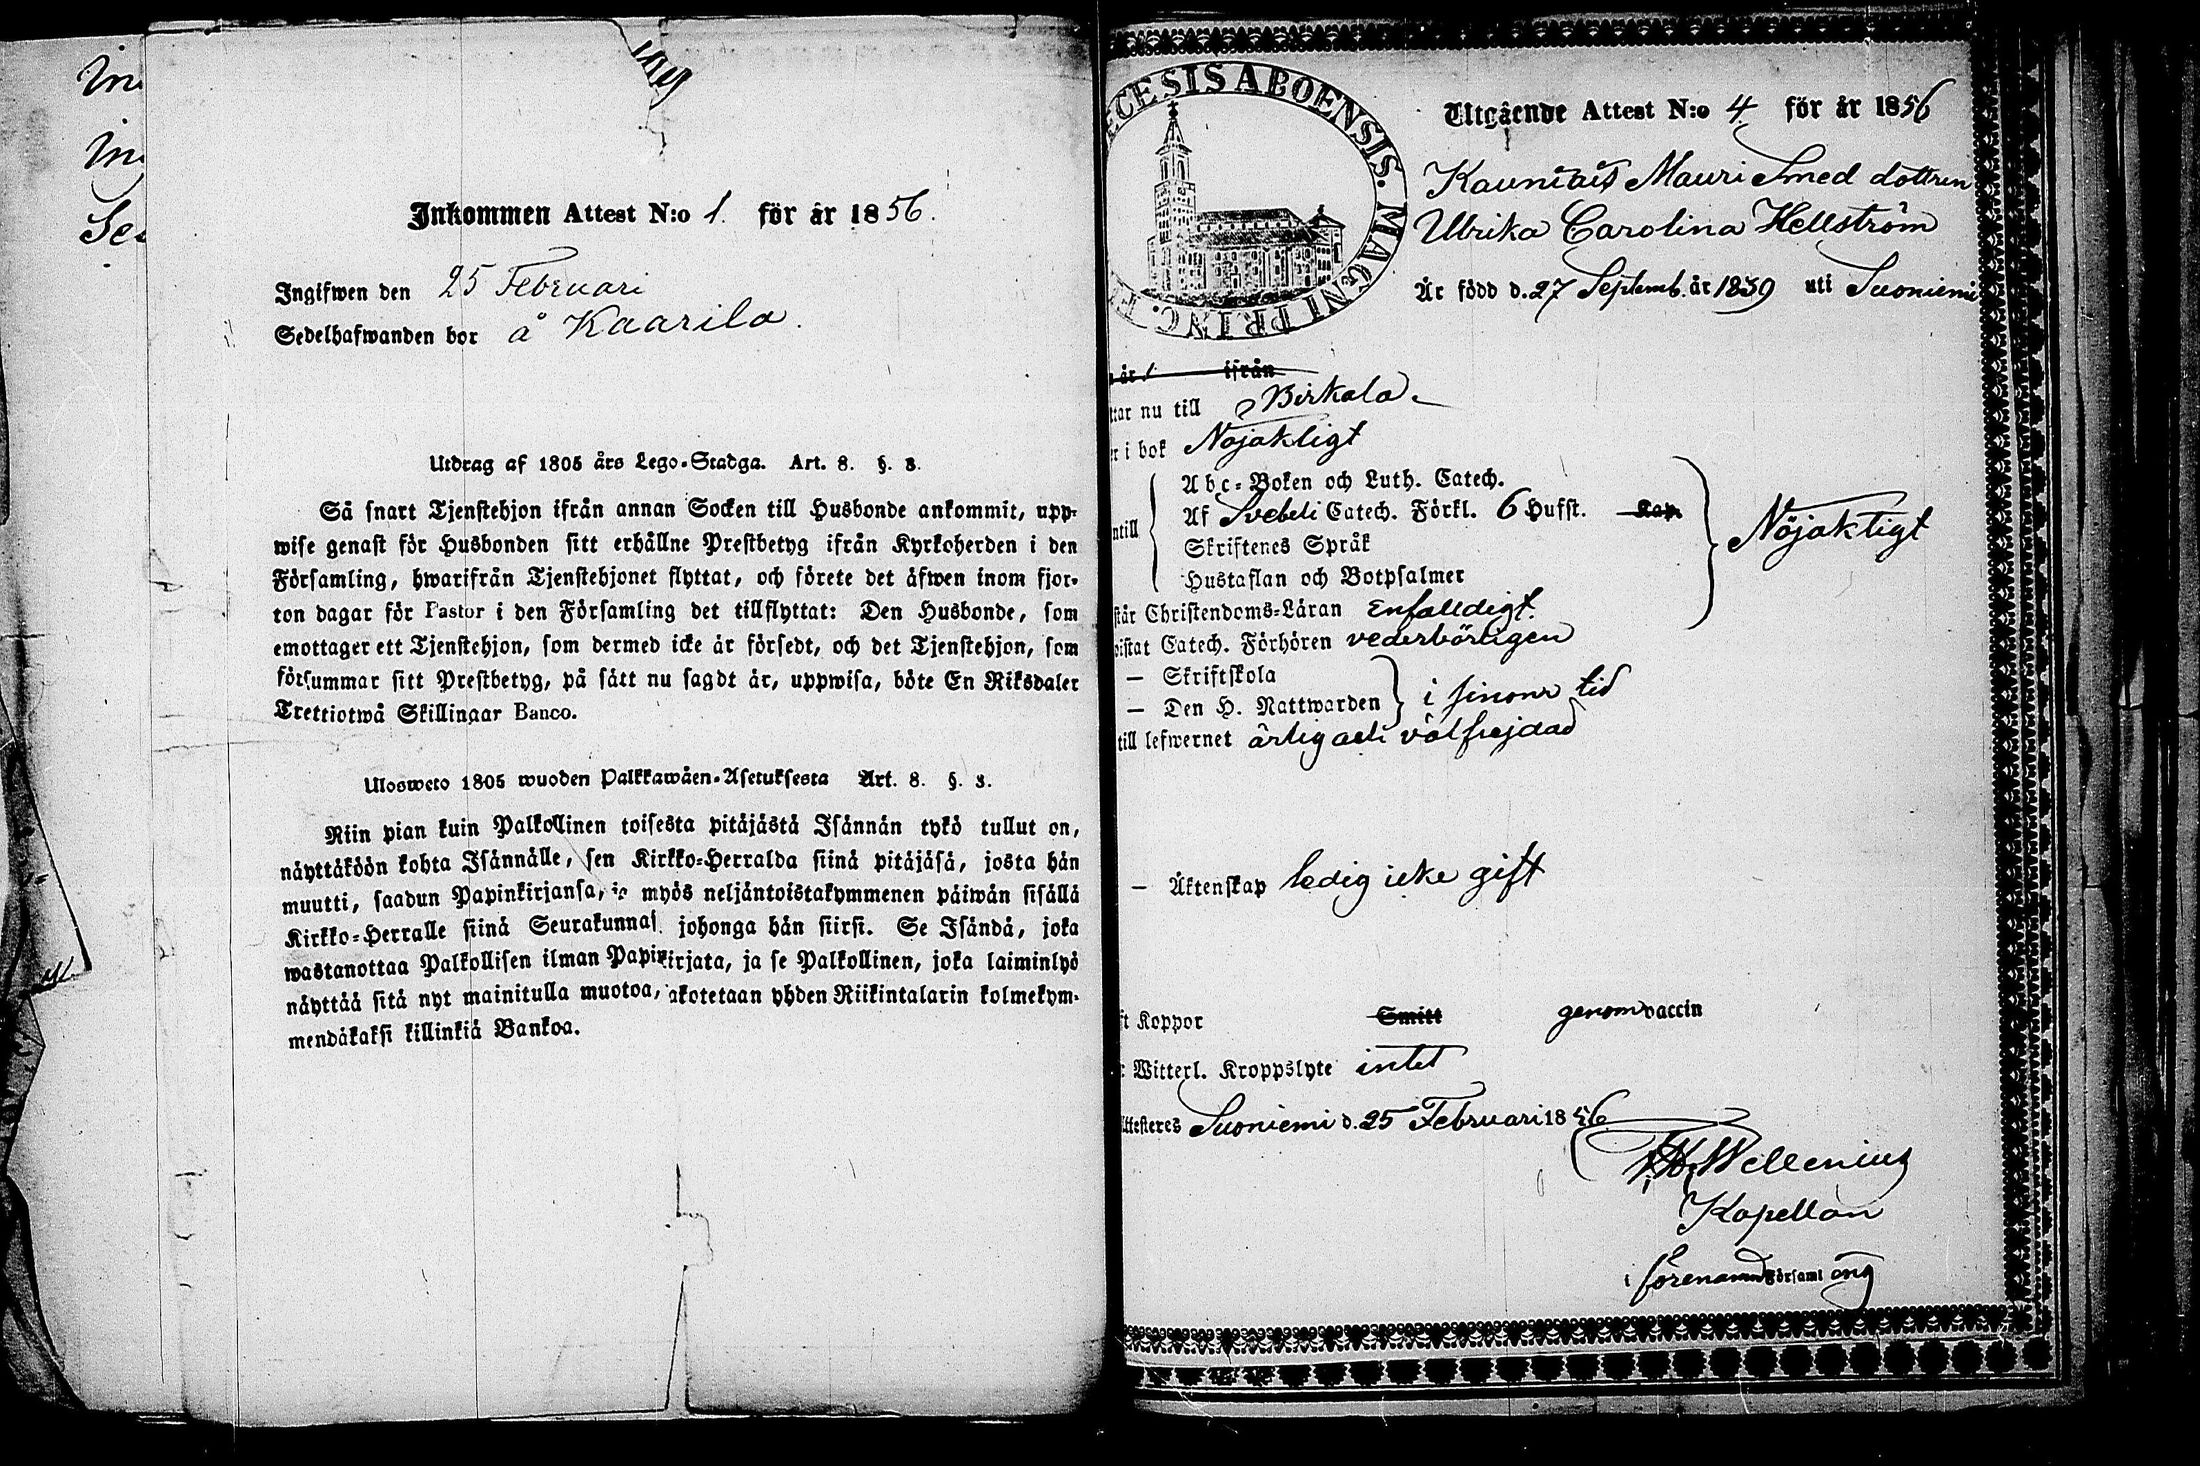 Inkommen Attest N:o 1. för år 1856.
Ingifwen den 25 Februari
Sedelhafwanden bor å Kaarila.
Utdrag af 1805 års Lego-Stadga. Art. 8. §. 3.
Så snart Tjenstehjon ifrån annan Socken till Husbonde ankommit, upp-
wise genast för Husbonden sitt erhållne Prestbetyg ifrån Kyrkoherden i den
Församling, hwarifrån Tjenstehjonet flyttat, och förete det äfwen inom fjor-
ton dagar för Pastor i den Församling det tillflyttat: Den Husbonde, som
emottager ett Tjenstehjon, som dermed icke är försedt, och det Tjenstehjon, som
försummar sitt Prestbetyg, på sätt nu sagdt är, uppwisa, böte En Riksdaler
Trettiotwå Skillingar Banco.
Ulosweto 1805 wuoden Palkkawäen-Asetuksesta Art. 8. §. 3.
Niin pian kuin Palkollinen toisesta pitäjästä Isännän tykö tullut on,
näyttäköön kohta Isännälle, sen Kirkko-Herralda siinä pitäjäsä, josta hän
muutti, saadun Papinkirjansa, ja myös neljäntoistakymmenen päiwän sisällä
Kirkko-Herralle siinä Seurakunnas johonga hän siirsi. Se Isändä, joka
wastanottaa Palkollisen ilman Papinkirjata, ja se Palkollinen, joka laiminlyö
näyttää sitä nyt mainitulla muotoa, sakotetaan yhden Riikintalarin kolmekym-
mendäkaksi killinkiä Bankoa.
ECESIS ABOENSIS. MAGNI PRINC. F
Utgående Attest N:o 4. för år 1856
Kauniais Mauri Smed dottren
Ulrika Carolina Hellström
Är född d. 27 Septemb. år 1839 uti Suoniemi
år 1 ifrån
ttar nu till Birkala
er i bok Nöjaktigt
Abc-Boken och Luth. Catech.
Af Svebeli Catech. Förkl. 6 Hufst. Kap.
ntill
Skriftenes Språk
Hustaflan och Botpsalmer
Nöjaktigt
står Christendoms-Läran Enfalldigt.
wistat Catech. Förhören vederbörligen
— Skriftskola
— Den H. Nattwarden } i sinom tid
till lefwernet ärlig och välfrejdad
— Äktenskap ledig icke gift
ft Koppor Smitt genom vaccin
r Witterl. Kroppslyte intet
Attesteres Suoniemi d. 25 Februari 1856
Wellenius
Kapellan
i förenamnd Församling